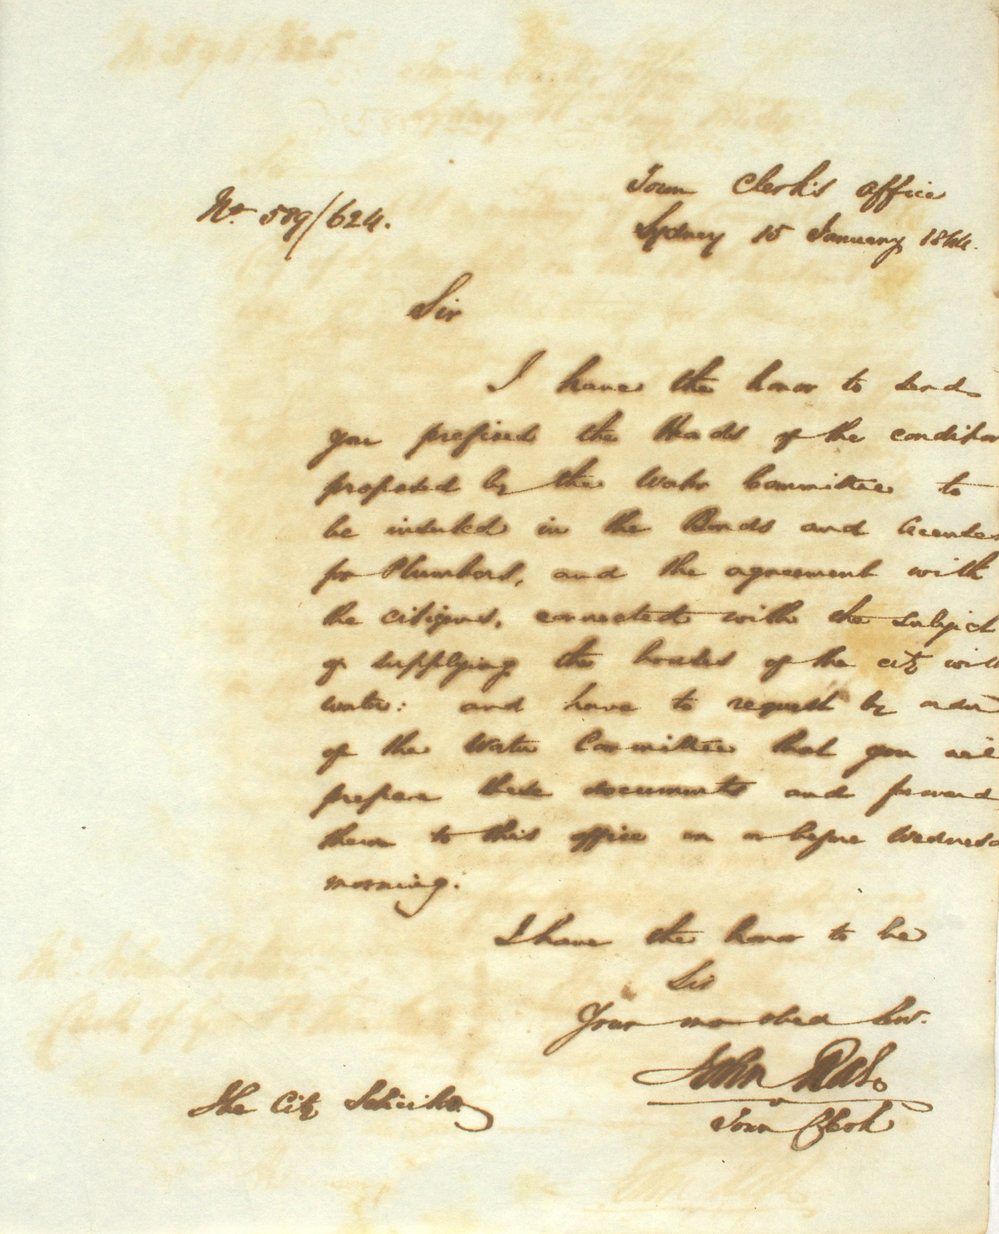 Town Clerk's Office
No. 589/624.
Sydney 15 January 1844.
Sir
I have the honor to send
you prefixed the Heads of the condition
proposed by the Water Committee to
be inserted in the Bonds and licenses
for Plumbers, and the agreement with
the citizens, connected with the subject
of supplying the houses of the city with
water: and have to request by order
of the Water Committee that you will
prepare these documents and forward
them to this office on or before Wednesd
morning.
I have the honor to be
Sir
Your mo obed Serv.
John
Town Clerk
The City Solicitor